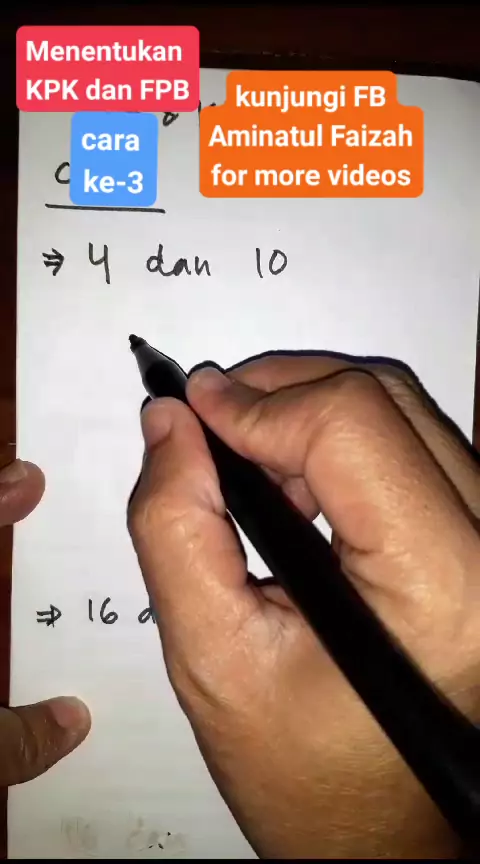 Menentukan
KPK dan FPB
kunjungi FB
Aminatul Faizah
for more videos
cara
ke-3
⇒ 4 dan 10
⇒ 16